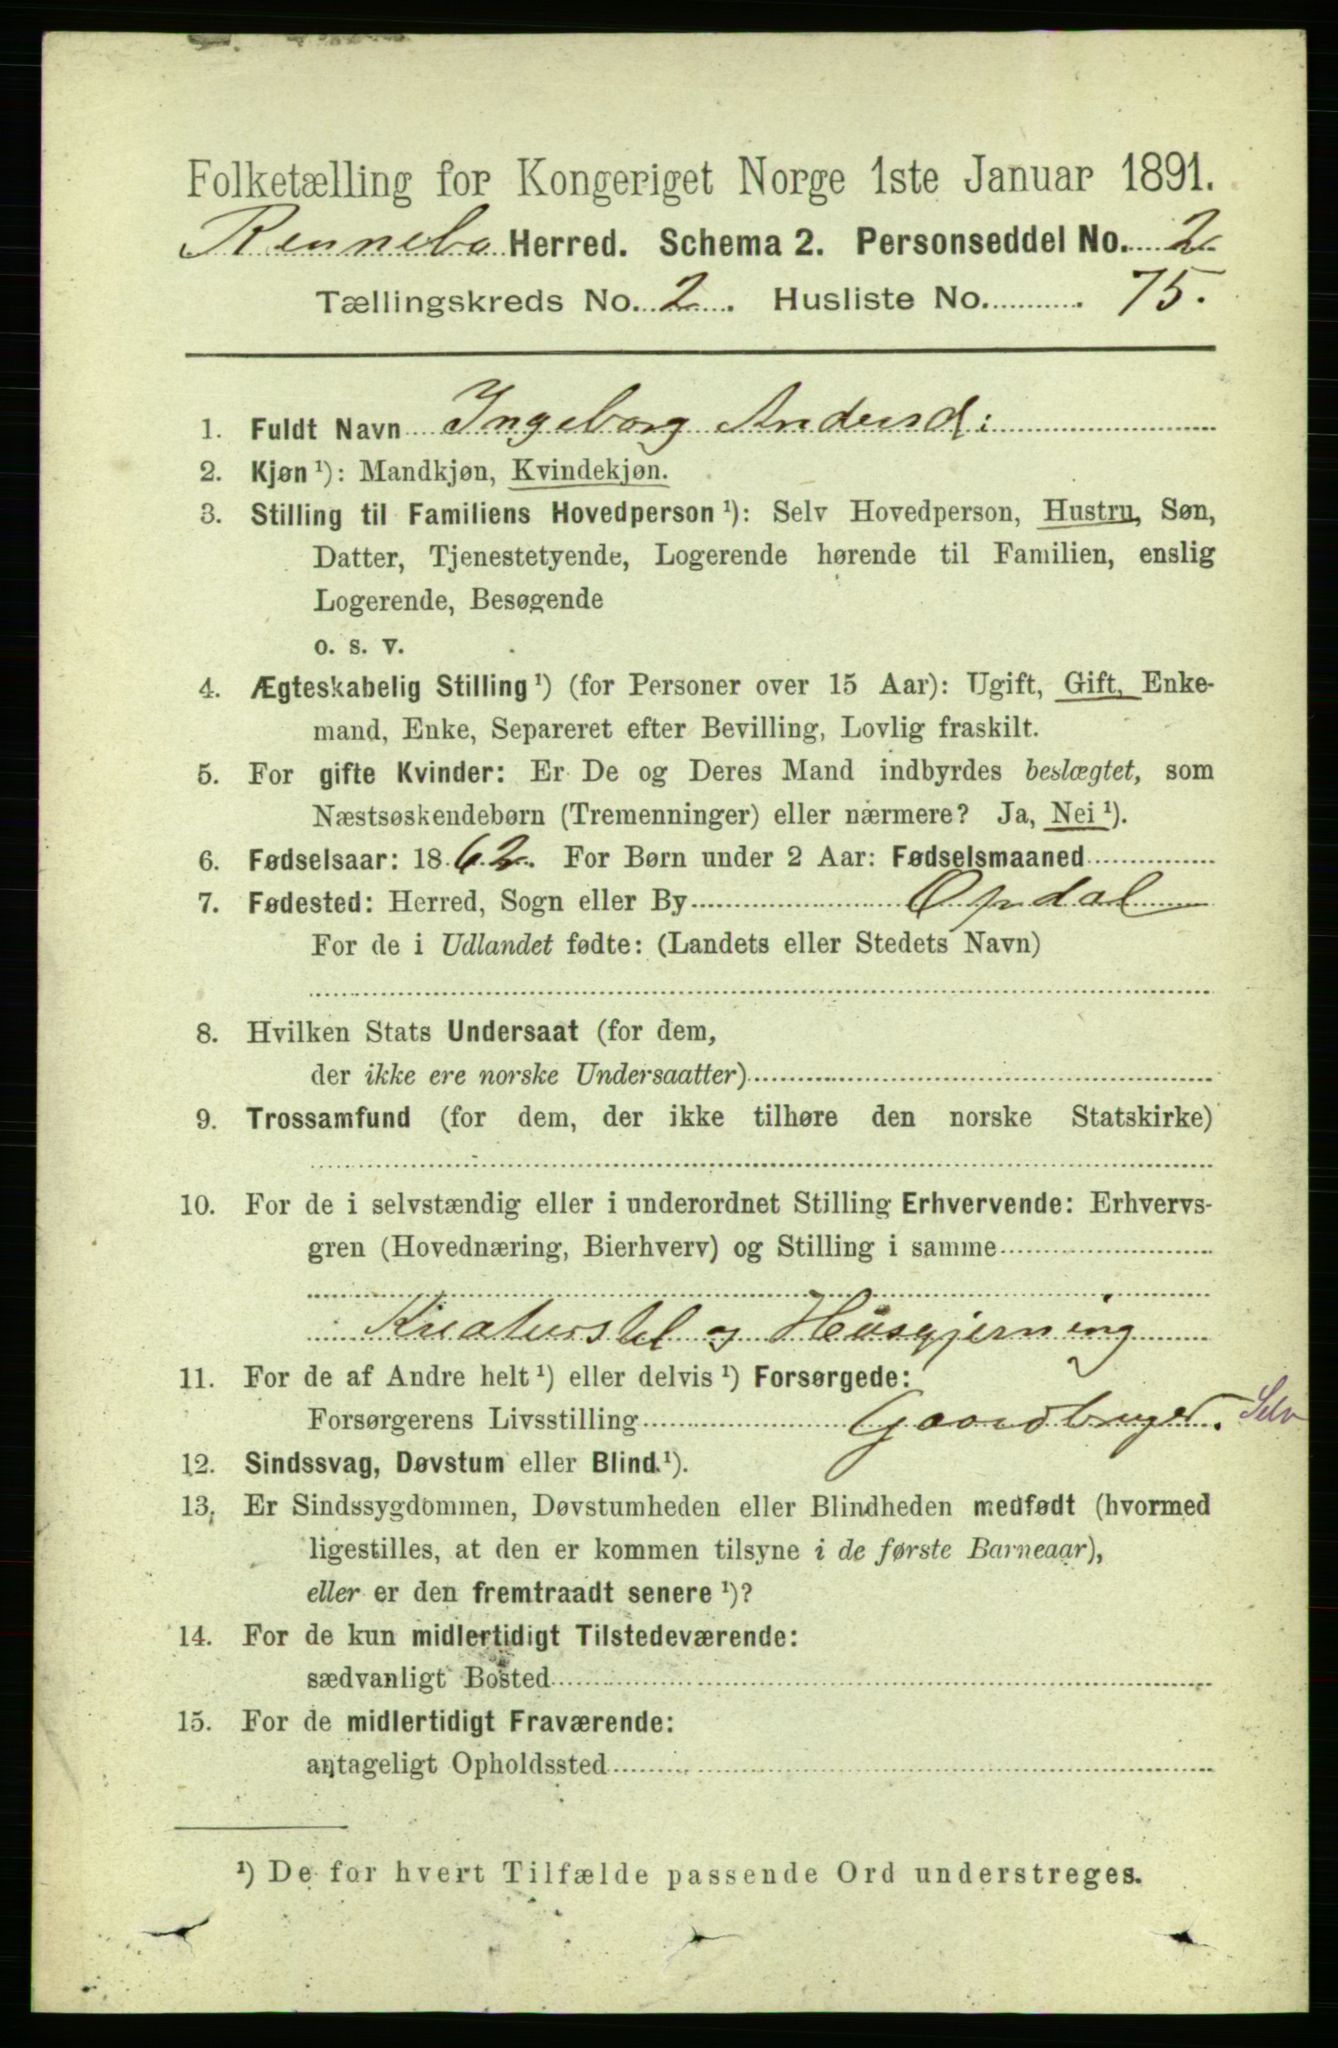 Folketælling for Kongeriget Norge 1ste Januar 1891.
Rennebo Herred. Schema 2. Personseddel No. 2
Tællingskreds No. 2. Husliste No. 75.
1. Fuldt Navn Ingeborg Andersd:
2. Kjøn ¹): Mandkjøn, Kvindekjøn.
3. Stilling til Familiens Hovedperson ¹): Selv Hovedperson, Hustru, Søn,
Datter, Tjenestetyende, Logerende hørende til Familien, enslig
Logerende, Besøgende
o. s. v.
4. Ægteskabelig Stilling ¹) (for Personer over 15 Aar): Ugift, Gift, Enke-
mand, Enke, Separeret efter Bevilling, Lovlig fraskilt.
5. For gifte Kvinder: Er De og Deres Mand indbyrdes beslægtet, som
Næstsøskendebørn (Tremenninger) eller nærmere? Ja, Nei ¹).
6. Fødselsaar: 1862. For Børn under 2 Aar: Fødselsmaaned
7. Fødested: Herred, Sogn eller By Opdal
For de i Udlandet fødte: (Landets eller Stedets Navn)
8. Hvilken Stats Undersaat (for dem,
der ikke ere norske Undersaatter)
9. Trossamfund (for dem, der ikke tilhøre den norske Statskirke)
10. For de i selvstændig eller i underordnet Stilling Erhvervende: Erhvervs-
gren (Hovednæring, Bierhverv) og Stilling i samme
Kreaturstel og Husgjerning
11. For de af Andre helt ¹) eller delvis ¹) Forsørgede:
Forsørgerens Livsstilling Gaardbruger. Selv
12. Sindssvag, Døvstum eller Blind ¹).
13. Er Sindssygdommen, Døvstumheden eller Blindheden medfødt (hvormed
ligestilles, at den er kommen tilsyne i de første Barneaar),
eller er den fremtraadt senere ¹)?
14. For de kun midlertidigt Tilstedeværende:
sædvanligt Bosted
15. For de midlertidigt Fraværende:
antageligt Opholdssted
¹) De for hvert Tilfælde passende Ord understreges.